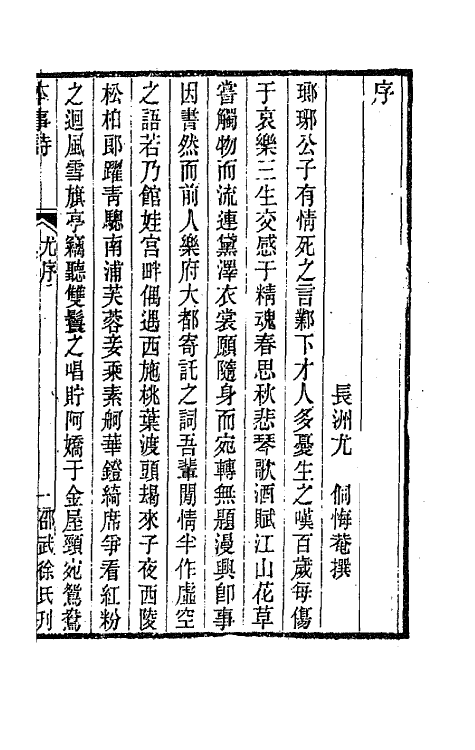 序
長洲尤　侗悔菴撰
瑯琊公子有情死之言鄴下才人多憂生之嘆百歲每傷
于哀樂三生交感于精魂春思秋悲琴歌酒賦江山花草
嘗觸物而流連黛澤衣裳願隨身而宛轉無題漫興卽事
因書然而前人樂府大都寄託之詞吾輩閒情半作虛空
之語若乃館娃宮畔偶遇西施桃葉渡頭朅來子夜西陵
松柏郞躍青驄南浦芙蓉妾乘素舸華鐙綺席爭看紅粉
之迴風雪旗亭竊聽雙鬟之唱貯阿嬌于金屋頸宛鴛鴦
本事詩　尤序　一　邵武徐氏刋